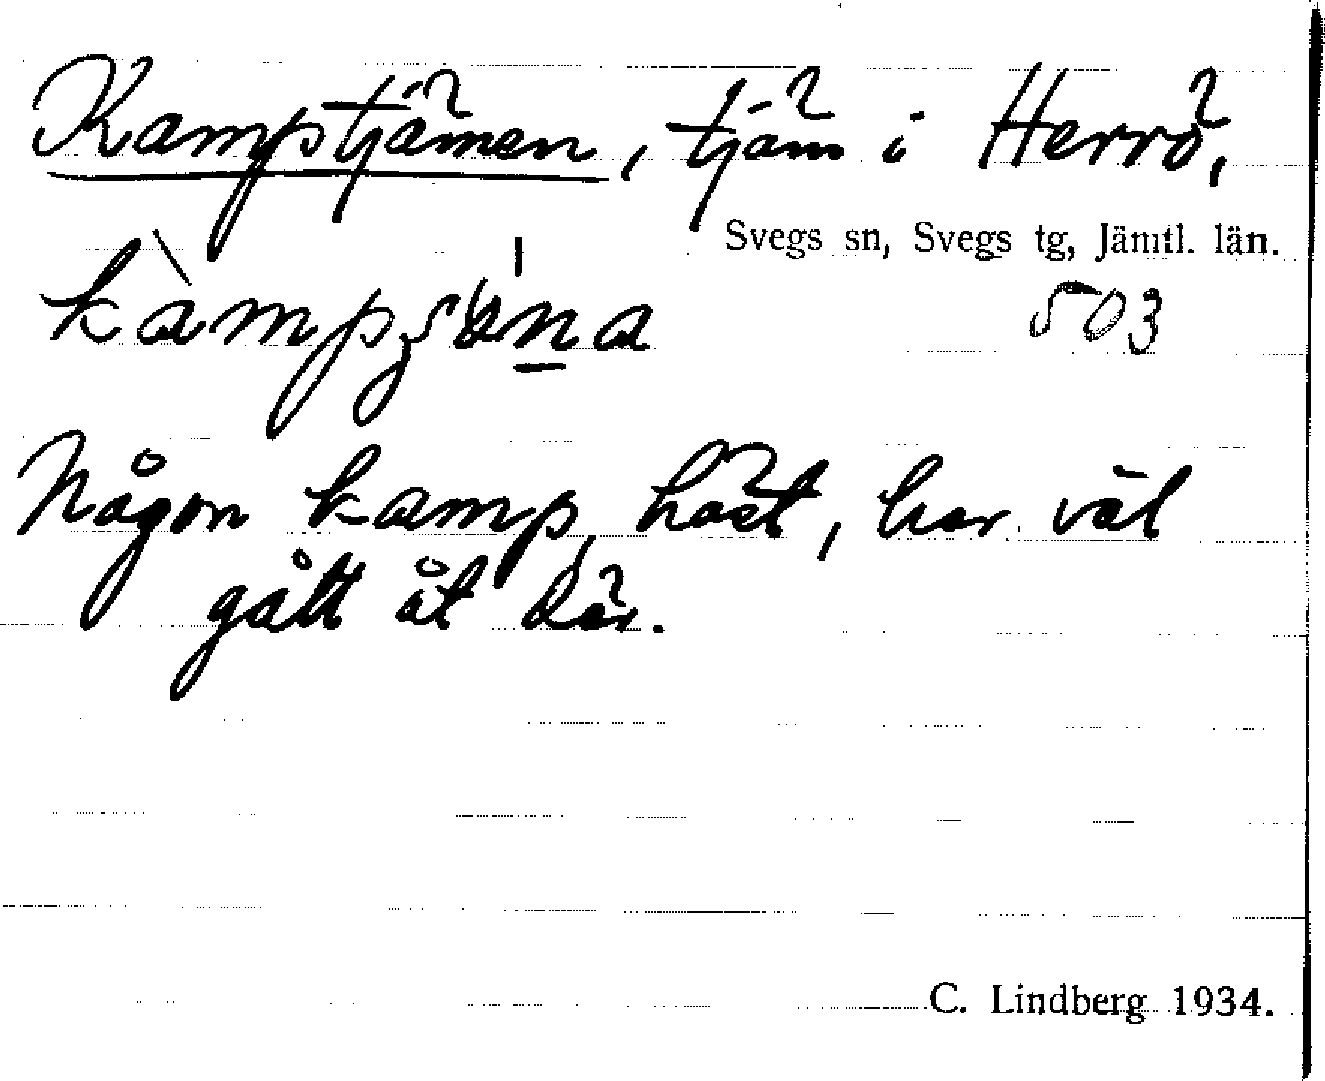 Kampstjärnen, tjärn i Herrö,
Svegs sn, Svegs tg, Jämtl. län.
503
Någon kamp, häst, har väl
gått åt där.
C. Lindberg 1934.